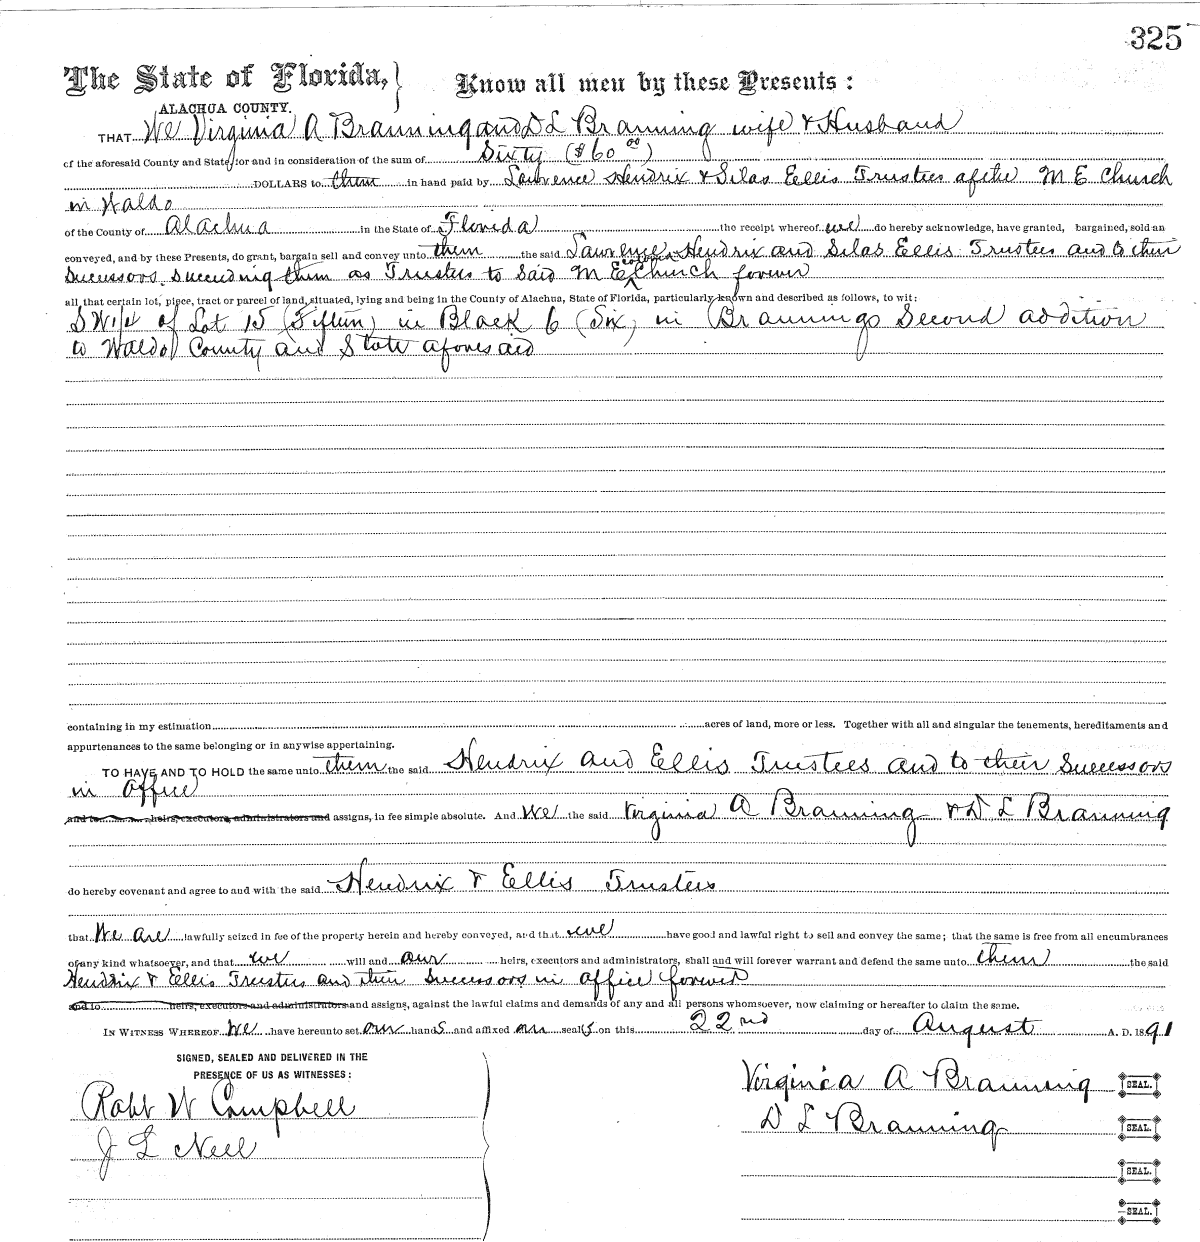 325
The State of Florida, } Know all men by these Presents:
ALACHUA COUNTY.
THAT We Virginia A Branning and D L Branning wife & Husband
of the aforesaid County and State, for and in consideration of the sum of Sixty ($60 00)
DOLLARS to them in hand paid by Lawrence Hendrix & Silas Ellis Trustees of the M E Church
in Waldo
of the County of Alachua in the State of Florida the receipt whereof we do hereby acknowledge, have granted, bargained, sold an
conveyed, and by these Presents, do grant, bargain sell and convey unto them the said Lawrence Hendrix and Silas Ellis Trustees and to their
Successors Succeeding them as Trustees to Said M E Church forever
all that certain lot, piece, tract or parcel of land, situated, lying and being in the County of Alachua, State of Florida, particularly known and described as follows, to wit:
SW1/4 of Lot 15 (Fifteen) in Block 6 (Six) in Brannings Second addition
to Waldo County and State aforesaid
containing in my estimation acres of land, more or less. Together with all and singular the tenements, hereditaments and
appurtenances to the same belonging or in anywise appertaining.
TO HAVE AND TO HOLD the same unto them the said Hendrix and Ellis Trustees and to their Successors
in office
and to heirs, executors, administrators and assigns, in fee simple absolute. And We the said Virginia A Branning & D L Branning
do hereby covenant and agree to and with the said Hendrix & Ellis Trustees
that We are lawfully seized in fee of the property herein and hereby conveyed, and that we have good and lawful right to sell and convey the same; that the same is free from all encumbrances
of any kind whatsoever, and that we will and our heirs, executors and administrators, shall and will forever warrant and defend the same unto them the said
Hendrix & Ellis Trustees and their Successors in office forever
and to heirs, executors and administrators and assigns, against the lawful claims and demands of any and all persons whomsoever, now claiming or hereafter to claim the same.
IN WITNESS WHEREOF We have hereunto set our hands and affixed our seals on this 22nd day of August A. D. 1891
SIGNED, SEALED AND DELIVERED IN THE
PRESENCE OF US AS WITNESSES:
Virginia A Branning SEAL.
Robt W Campbell
D L Branning SEAL.
J L Neil
SEAL.
SEAL.